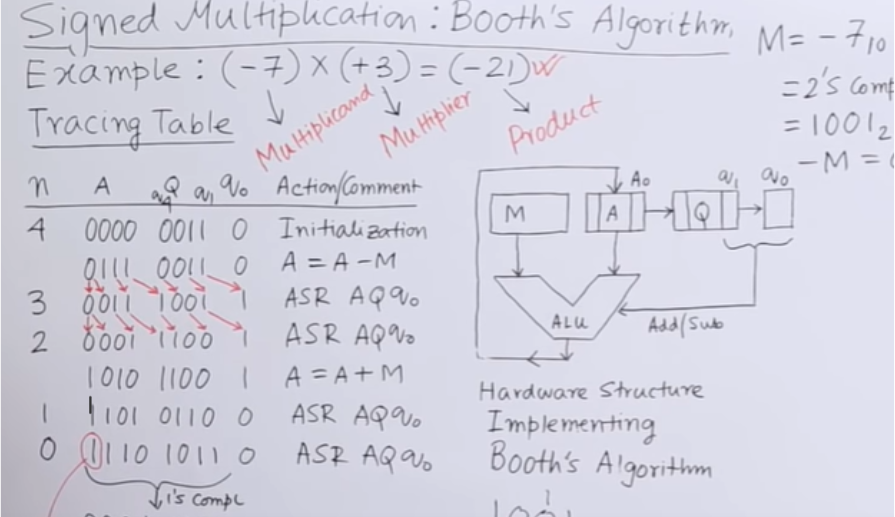 Signed Multiplication : Booth's Algorithm,
Example : (-7) × (+3) = (-21)
Multiplicand
Multiplier
Product
M = -7₁₀
= 2's Comp
= 1001₂
-M =
Tracing Table
n A Q q₁ q₀ Action/Comment
4 0000 0011 0 Initialization
0111 0011 0 A = A - M
3 0011 1001 1 ASR AQq₀
2 0001 1100 1 ASR AQq₀
1010 1100 1 A = A + M
1 1101 0110 0 ASR AQq₀
0 1110 1011 0 ASR AQq₀
1's Compl
A₀ q₁ q₀
M A Q
ALU
Add/Sub
Hardware Structure
Implementing
Booth's Algorithm